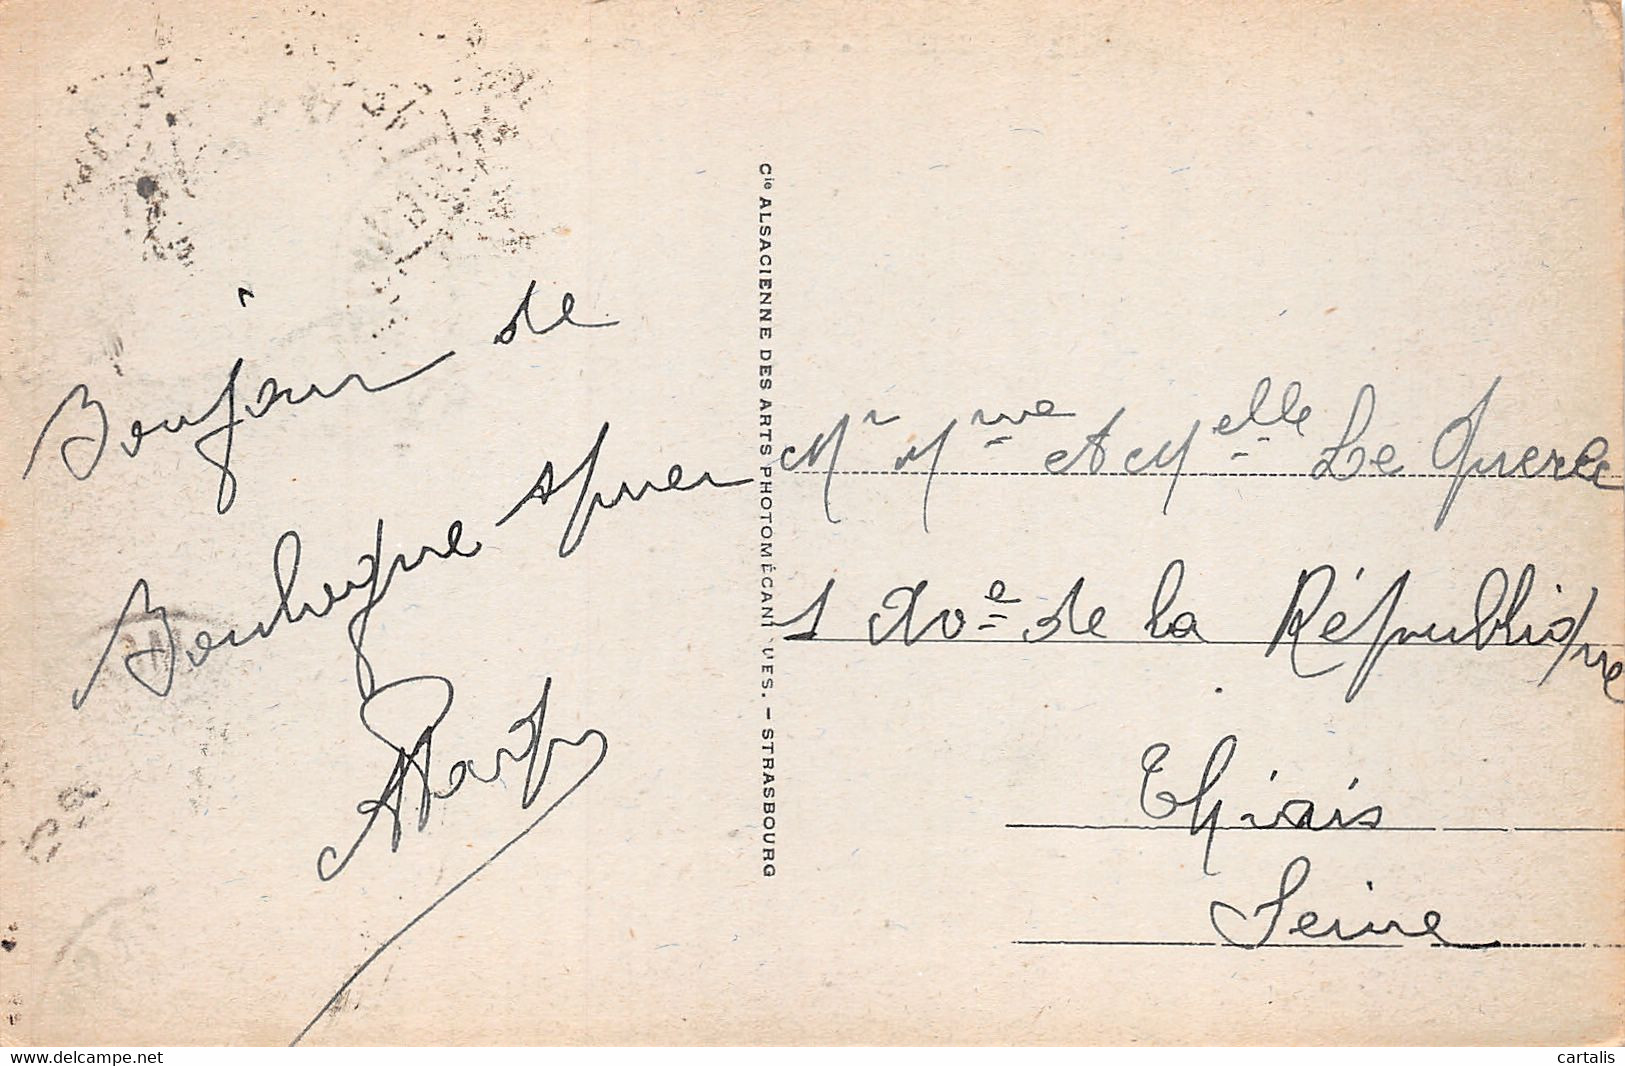 Bonjour de
Boulogne sur mer
Cie ALSACIENNE DES ARTS PHOTOMÉCANI UES. – STRASBOURG
Mr Mme et Melle Le Querec
1 Ave de la République
Thiais
Seine
www.delcampe.net
cartalis